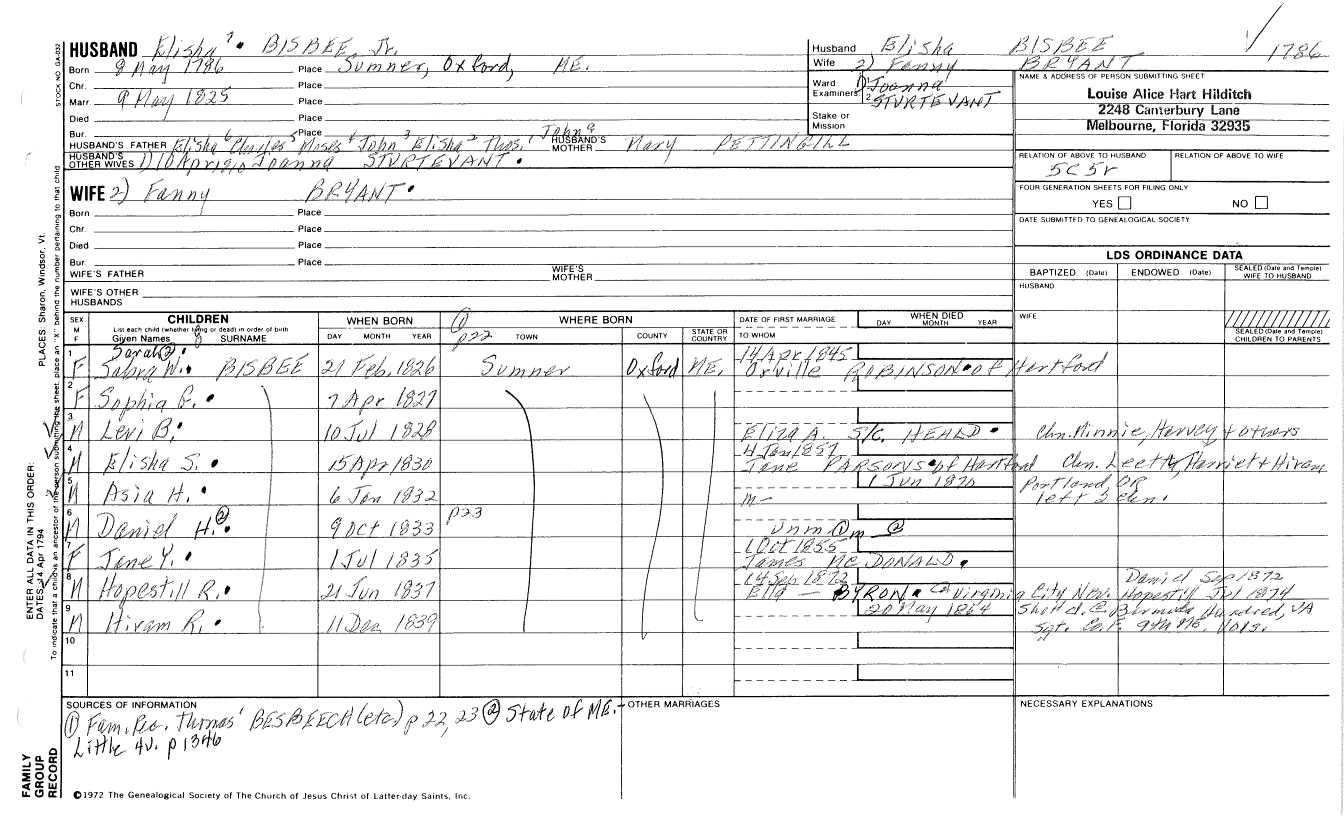 HUSBAND Elisha 7 • BISBEE, Jr.
Born 8 May 1786 Place Sumner, Oxford, ME.
Chr. Place
Marr 9 May 1825 Place
Died Place
Bur. Place
HUSBAND'S FATHER Elisha 6 Charles 5 Moses 4 John 3 Elisha 2 Thos. 1 John a HUSBAND'S MOTHER Mary PETTINGILL
HUSBAND'S OTHER WIVES Joanna STURTEVANT •
WIFE 2) Fanny BRYANT •
Born Place
Chr. Place
Died Place
Bur. Place
WIFE'S FATHER WIFE'S MOTHER
WIFE'S OTHER HUSBANDS
Husband Elisha BISBEE
Wife 2) Fanny BRYANT
Ward Examiners 1) Joanna STURTEVANT
Stake or Mission
1786
NAME & ADDRESS OF PERSON SUBMITTING SHEET
Louise Alice Hart Hilditch
2248 Canterbury Lane
Melbourne, Florida 32935
RELATION OF ABOVE TO HUSBAND RELATION OF ABOVE TO WIFE
5C5r
FOUR GENERATION SHEETS FOR FILING ONLY
YES NO
DATE SUBMITTED TO GENEALOGICAL SOCIETY
LDS ORDINANCE DATA
BAPTIZED (Date) ENDOWED (Date) SEALED (Date and Temple) WIFE TO HUSBAND
HUSBAND
WIFE
SEALED (Date and Temple) CHILDREN TO PARENTS
SEX M F
CHILDREN
List each child (whether living or dead) in order of birth
Given Names SURNAME
WHEN BORN
DAY MONTH YEAR
① p22
WHERE BORN
TOWN COUNTY STATE OR COUNTRY
DATE OF FIRST MARRIAGE
TO WHOM
WHEN DIED
DAY MONTH YEAR
1 Sarah ② • 14 Apr 1845
F Sabra W. • BISBEE 21 Feb. 1826 Sumner Oxford ME. Orville ROBINSON • of Hartford
2
F Sophia G. • 7 Apr 1827
3
M Levi B. • 10 Jul 1828 Eliza A. S/C. HEALD • Chn. Minnie, Harvey + others
4 4 Jan 1857
M Elisha S. • 15 Apr 1830 Jane PARSONS • of Hartford Chn. Leetta, Harriet + Hiram
5 1 Jun 1870 Portland, OR
M Asia H. • 6 Jan 1832 m— left 2 chn.
6 p23
M Daniel H. ② • 9 Oct 1833 unm. ① m ②
7 1 Oct 1855
F Jane Y. • 1 Jul 1835 James MC DONALD •
8 14 Sep 1872 Daniel Sep 1872
M Hopestill R. • 21 Jun 1837 Ella — BYRON • @ Virginia City Nev. Hopestill Jul 1874
9 20 May 1864 Shot d. @ Bermuda Hundred, VA
M Hiram R. • 11 Dec 1839 Sgt. Co. F. 9th ME. Vols.
10
11
SOURCES OF INFORMATION
① Fam. Rec. Thomas' BESBEECH (etc) p 22, 23 ② State of ME. -
Little 4v. p 1346
OTHER MARRIAGES
NECESSARY EXPLANATIONS
©1972 The Genealogical Society of The Church of Jesus Christ of Latter-day Saints, Inc.
STOCK NO. GA-032
PLACES: Sharon, Windsor, Vt.
ENTER ALL DATA IN THIS ORDER:
DATES: 14 Apr 1794
FAMILY GROUP RECORD